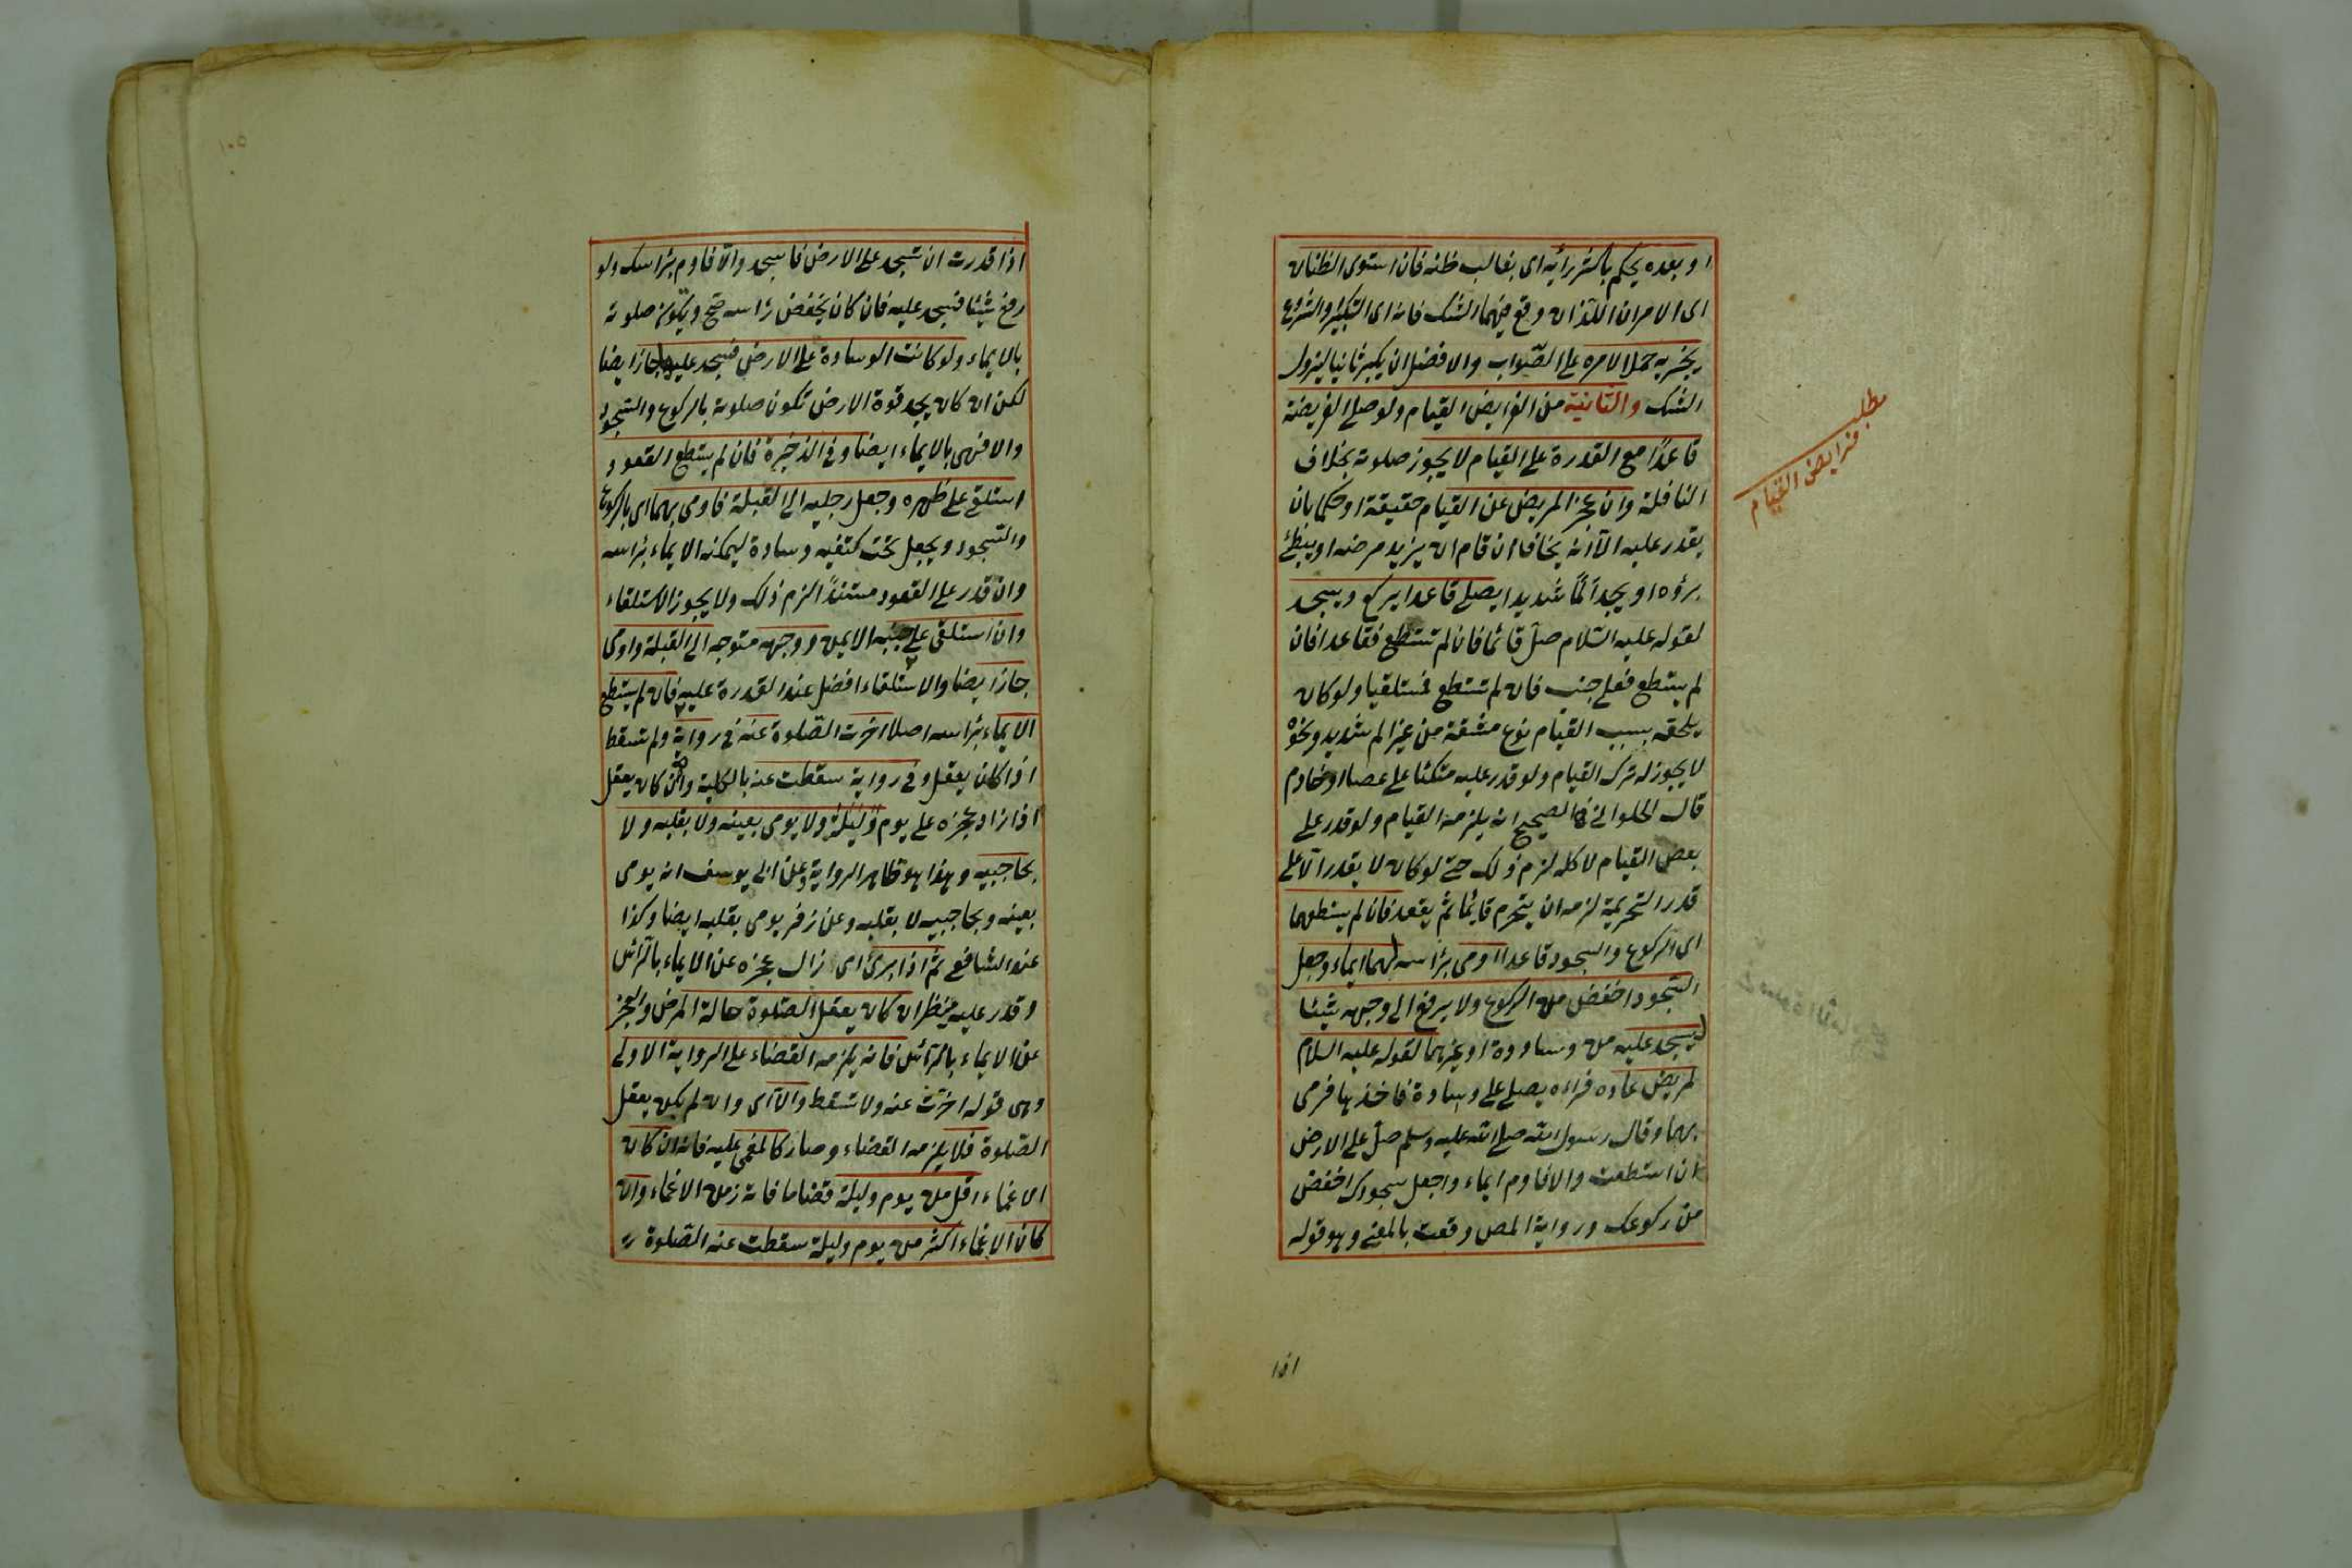 او بعده يحكم باكثر رأيه اى بغالب ظنه فان استوى الظنان
اى الامران اللذان وقع فيهما الشك فانه اى التكبير والشروع
يجزيه حملا لامره على الصواب والافضل ان يكبر ثانيا ليزول
الشك والثانية من الفرايض القيام ولو صلى الفريضة
قاعدًا مع القدرة على القيام لا يجوز صلوته بخلاف
النافلة وان عجز المريض عن القيام حقيقة او حكما بان
يقدر عليه الا انه يخاف ان قام ان يزيد مرضه او يبطئ
برؤه او يجد ألمًا شديدا يصلى قاعدا يركع ويسجد
لقوله عليه السلام صلّ قائما فان لم تستطع فقاعدا فان
لم يستطع فعلى جنب فان لم تستطع فمستلقيا ولو كان
يلحقه بسبب القيام نوع مشقة من غير الم شديد ونحوه
لا يجوز له ترك القيام ولو قدر عليه متكئا على عصا او خادم
قال الحلوانى الصحيح انه يلزمه القيام ولو قدر على
بعض القيام لا كله لزم ذلك حتى لو كان لا يقدر الا على
قدر التحريمة لزمه ان يتحرم قايمًا ثم يقعد فان لم يستطعهما
اى الركوع والسجود قاعدا اومى برأسه لهما ايماء وجعل
السجود اخفض من الركوع ولا يرفع الى وجهه شيئا
ليسجد عليه من وسادة او غيرهما لقوله عليه السلام
لمريض عاده فراءه يصلى على وسادة فاخذها فرمى
بها وقال رسول الله صلى الله عليه وسلم صلّ على الارض
ان استطعت والا فاوم ايماء واجعل سجودك اخفض
من ركوعك ورواية المص وقعت بالمعنى وهو قوله
مطلب
فرايض القيام
١٥١
اذا قدرت ان تسجد على الارض فاسجد والّا فاوم برأسك ولو
رفع شيئا فسجد عليه فان كان يخفض رأسه صح ويكون صلوته
بالايماء ولو كانت الوسادة على الارض فسجد عليها جاز ايضا
لكن ان كان يجد قوة الارض تكون صلوته بالركوع والسجود
والا فهى بالايماء ايضا وفى الذخيرة فان لم يستطع القعود
استلقى على ظهره وجعل رجليه الى القبلة فاومى بهما اى بالركوع
والسجود ويجعل تحت كتفيه وسادة ليمكنه الايماء برأسه
وان قدر على القعود مستندًا لزم ذلك ولا يجوز الاستلقاء
وان استلقى على جنبه الايمن ووجهه متوجه الى القبلة واومى
جاز ايضا والاستلقاء افضل عند القدرة عليه فان لم يستطع
الايماء برأسه اصلا اخرت الصلوة عنه فى رواية ولم تسقط
اذا كان يعقل وفى رواية سقطت عنه بالكلية وان كان يعقل
اذا زاد عجزه على يوم وليلة ولا يومى بعينه ولا بقلبه ولا
بحاجبيه وهذا هو ظاهر الرواية وعن ابى يوسف انه يومى
بعينه وبحاجبيه لا بقلبه وعن زفر يومى بقلبه ايضا وكذا
عند الشافعى ثم اذا برئ اى زال عجزه عن الايماء بالرأس
وقدر عليه ينظر ان كان يعقل الصلوة حالة المرض والعجز
عن الايماء بالرأس فانه يلزمه القضاء على الرواية الاولى
وهى قوله اخرت عنه ولا تسقط والا اى وان لم يكن يعقل
الصلوة فلا يلزمه القضاء وصار كالمغمى عليه فانه ان كان
الاغماء اقل من يوم وليلة قضا ما فاته زمن الاغماء وان
كان الاغماء اكثر من يوم وليلة سقطت عنه الصلوة